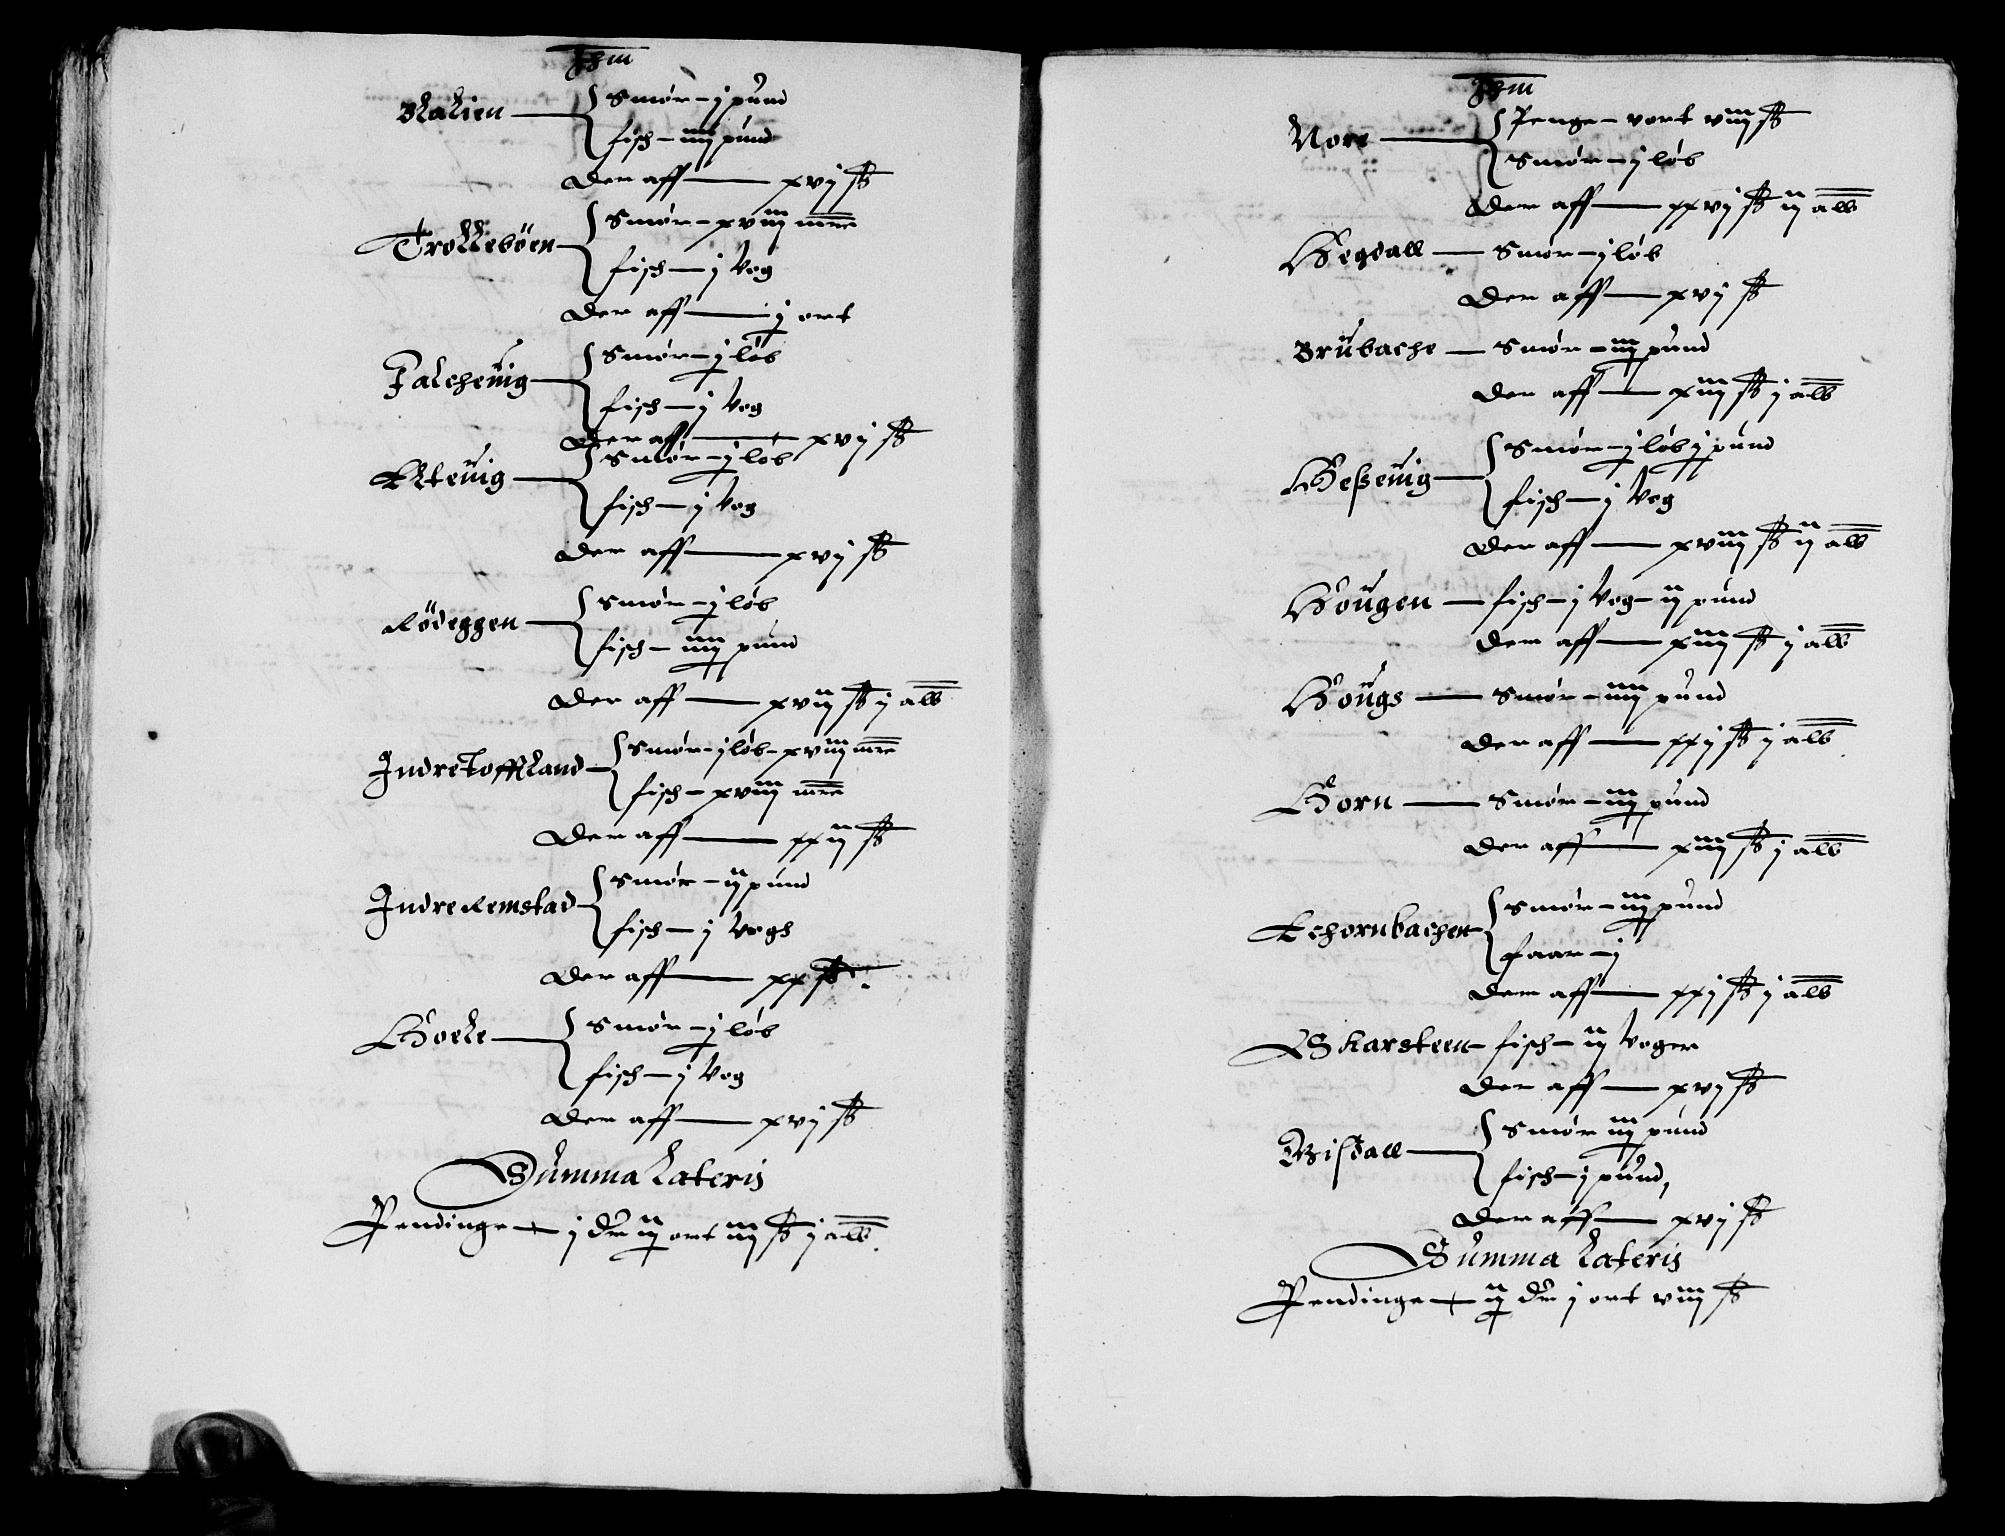 Blalien Smør – j pund
fisch – iiij pund
Der aff — xvj ß
Trolleböen Smør – xviij mrc
fisch – j Vog
Der aff — j ort
Falcheuig Smør – j løb
fisch – j Vog
Der aff — xvj ß
Elteuig Smør – j løb
fisch – j Vog
Der aff — xvj ß
Rödeggen Smør – j løb
fisch – iiij pund
Der aff — xvij ß j alb
Indre Toffland Smør – j løb – xviij mrc
fisch – xviij mrc
Der aff — xxij ß
Indre Remstad Smør – ij pund
fisch – j Vogh
Der aff — xx ß
Hoele Smør – j løb
fisch – j Vog
Der aff — xvj ß
Summa Lateris
Pendinge – j dlr ij ort iij ß j alb
Nore Penge – vort viij ß
Smør – j løb
Der aff — xxvj ß ij alb
Hegdall — Smør – j løb
Der aff — xvj ß
Brübache — Smør – iij pund
Der aff — xiij ß j alb
Heßeuig Smør – j løb j pund
fisch – j Vog
Der aff — xviij ß ij alb
Hougen — fisch – j Vog – ij pund
Der aff — xiij ß j alb
Hougs — Smør – iiij pund
Der aff — xxj ß j alb
Horn — Smør – iij pund
Der aff — xiij ß j alb
Echornbachen Smør – iij pund
faar – j
Der aff — xxj ß j alb
Skarsteen – fisch – ij Voger
Der aff — xvj ß
Bisdall Smør iij pund
fisch – j pund,
Der aff — xvj ß
Summa Lateris
Pendinge – ij dlr j ort viij ß